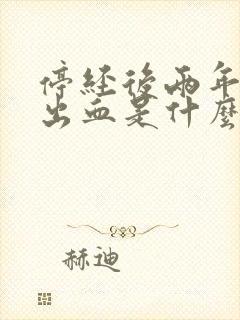 停經後兩年
出血是什麼
赫迪